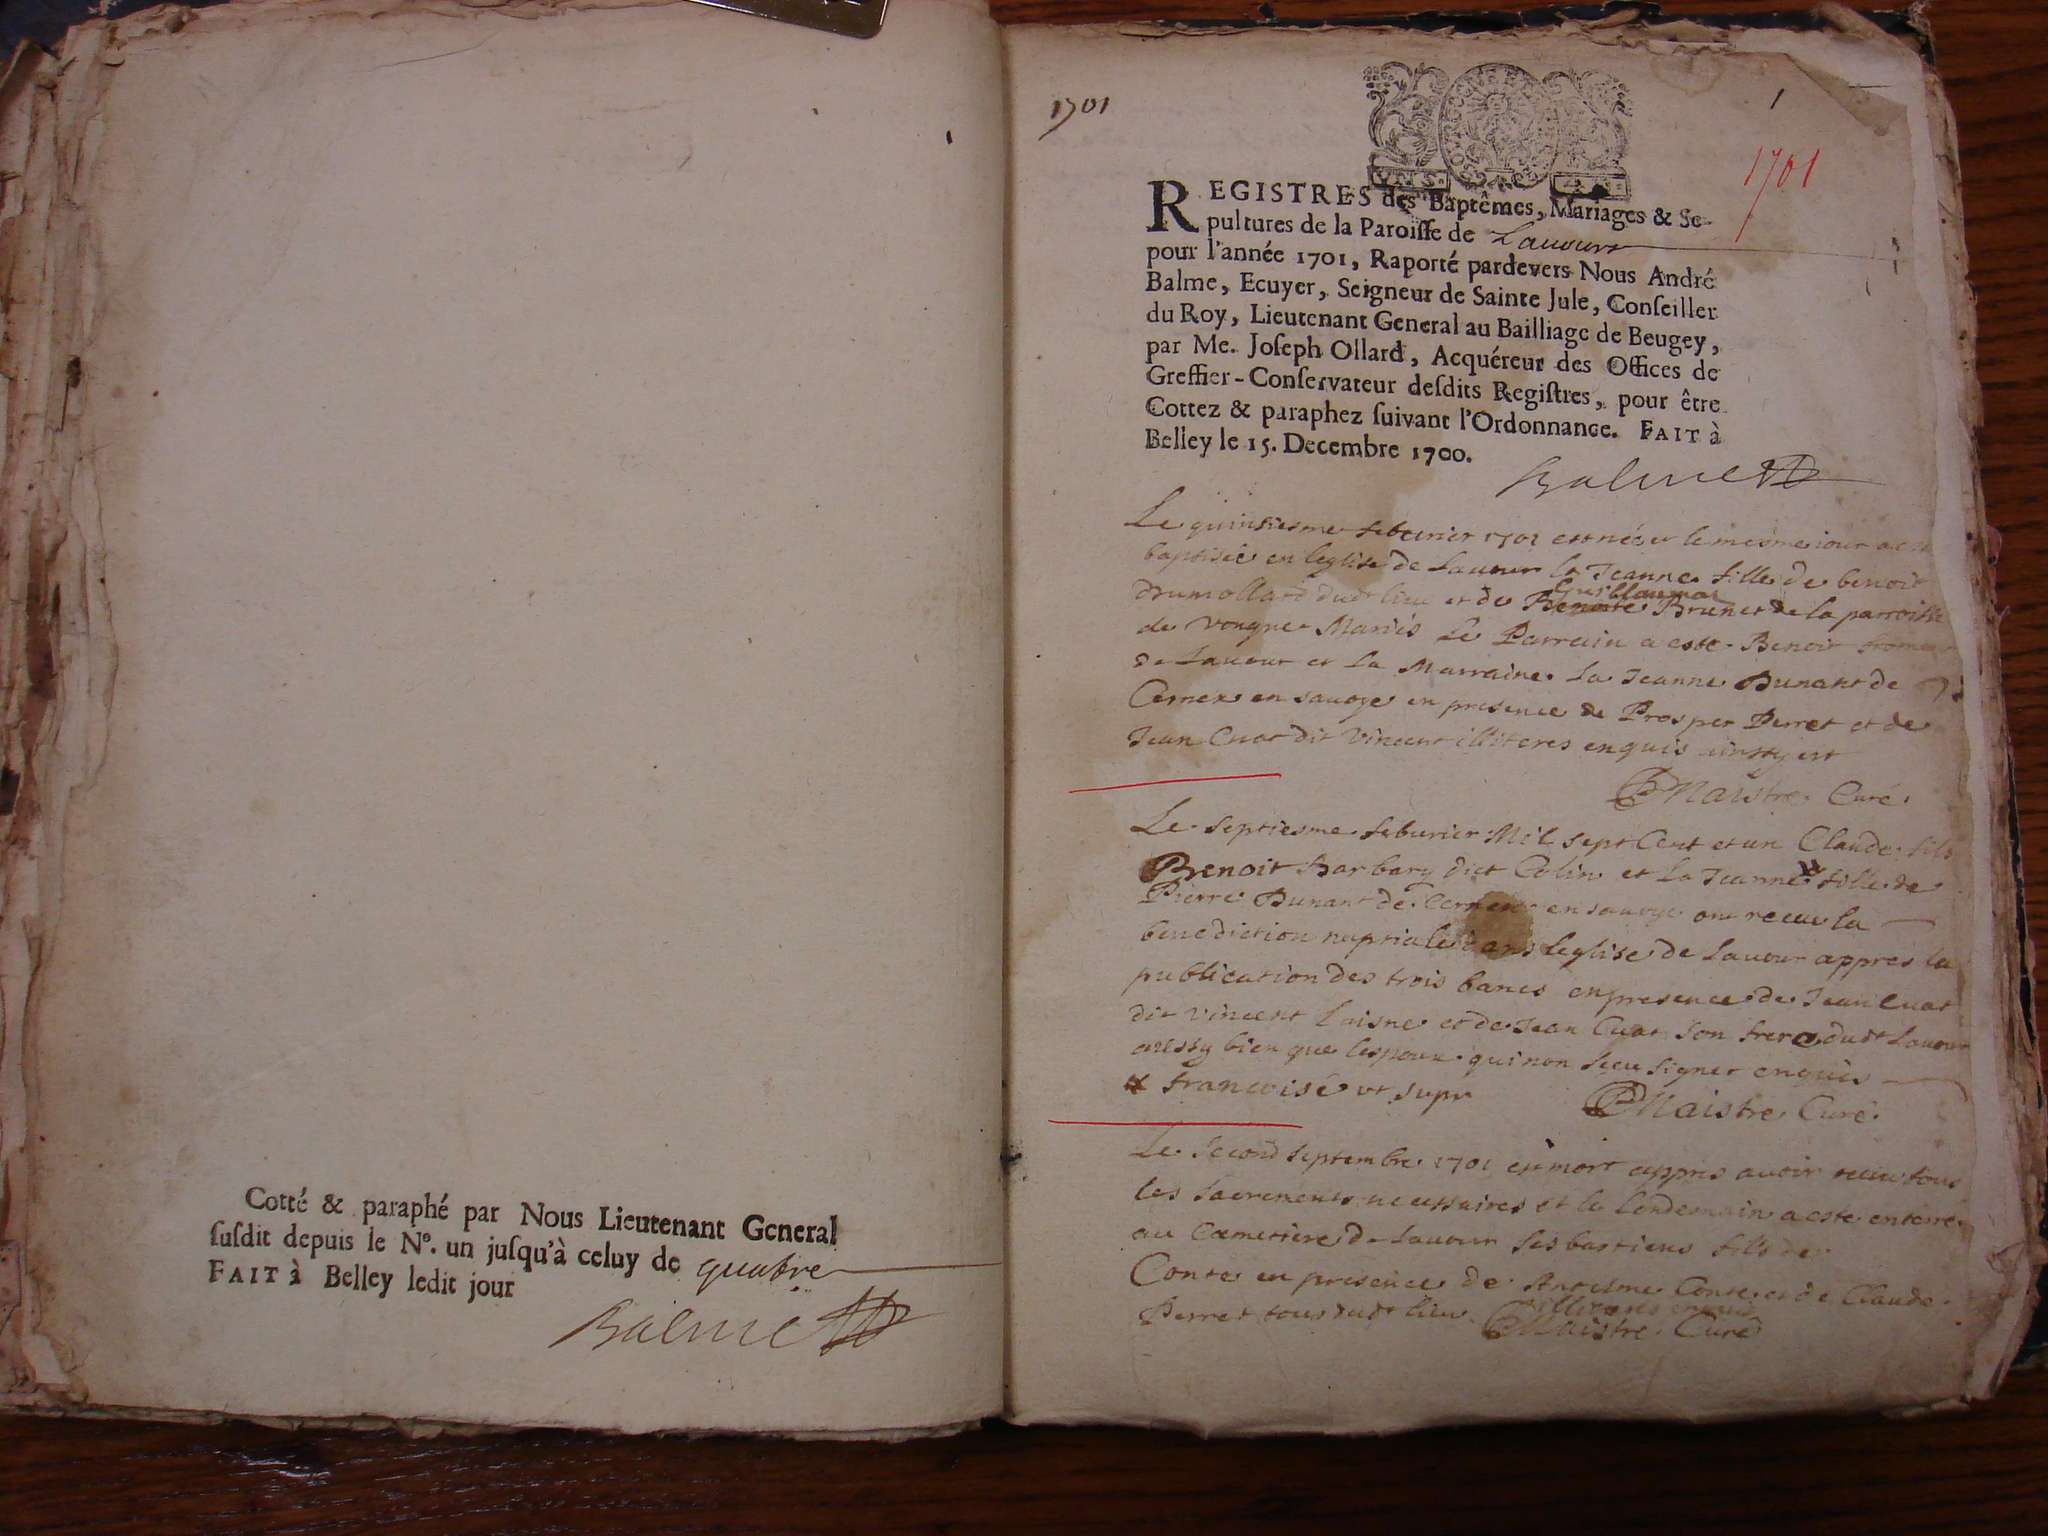 Cotté & paraphé par Nous Lieutenant General
ſuſdit depuis le Nº. un juſqu'à celuy de quatre
FAIT à Belley ledit jour
Balme
1701
1
1701
REGISTRES des Baptêmes, Mariages & Se-
pultures de la Paroiſſe de Lavours
pour l'année 1701, Raporté pardevers Nous André
Balme, Ecuyer, Seigneur de Sainte Jule, Conſeiller
du Roy, Lieutenant General au Bailliage de Beugey,
par Me. Joſeph Ollard, Acquéreur des Offices de
Greffier-Conſervateur deſdits Regiſtres, pour être
Cottez & paraphez ſuivant l'Ordonnance. FAIT à
Belley le 15. Decembre 1700.
Balme
Le quinsiesme feburier 1701 est née et le mesme iour a este
baptisée en leglise de Lauour la Jeanne fille de benoit
Drumollard dudt lieu et de Guillaumaz Brunet de la parroisse
de vongne Mariés Le Parrain a este Benoit
de Lauour et La Marraine La Jeanne Dunant de
Cernex en sauoye en presence de Prosper Perret et de
Jean Cuat dit Vincent illiteres enquis
Maistre Curé
Le septiesme feburier Mil sept Cent et un Claude fils
Benoit Barbary dict Colin et La Jeanne fille de
Pierre Dunant de Cernex en sauoye ont receu la
benediction nuptiale dans leglise de Lauour appres la
publication des trois bancs en presence de Jean Cuat
dit Vincent Laisne et de Jean Cuat son frere dudt Lauour
aussy bien que lespoux qui non sceu signer enquis
francoise ut supr
Maistre Curé
Le second septembre 1701 est mort appres auoir receu tous
les sacrements necessaires et le lendemain a este enterre
au Cemetiere de Lauour Sesbastiene fils de
Conte en presence de Antesme Conte et de Claude
Perret tous dudt lieu illiteres enquis
Maistre Curé